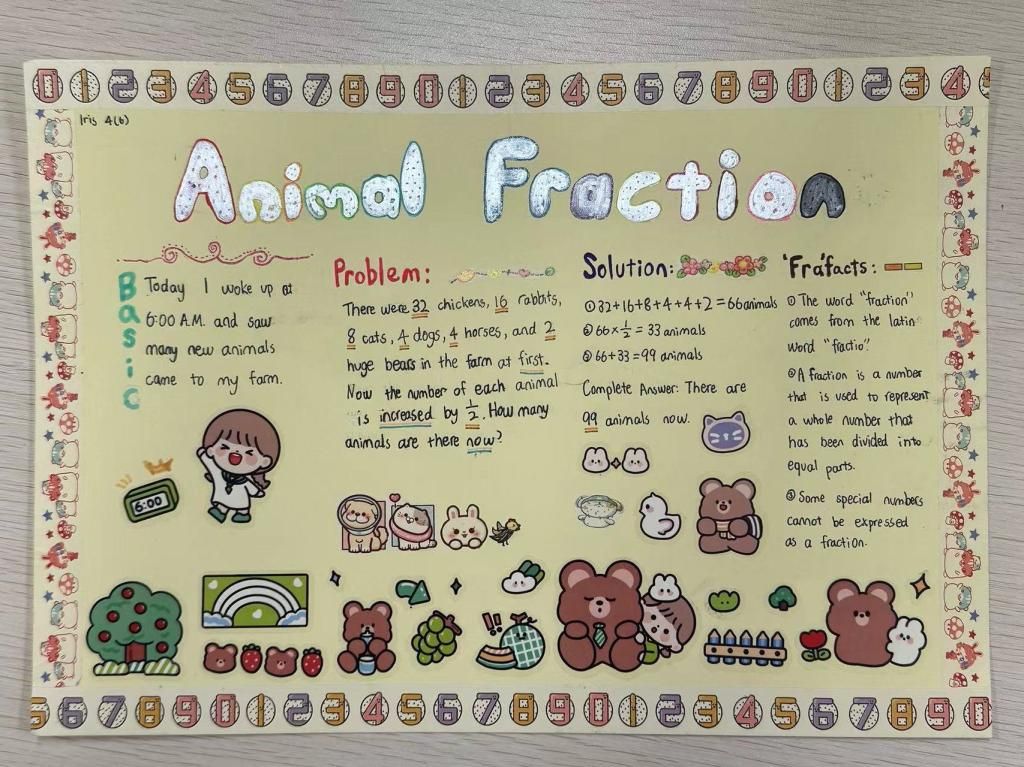 0 1 2 3 4 5 6 7 8 9 0 1 2 3 4 5 6 7 8 9 0 1 2 3 4 5
Iris 4(6)
Animal Fraction
Basic
Today I woke up at
6:00 A.M. and saw
many new animals
came to my farm.
6:00
Problem:
There were 32 chickens, 16 rabbits,
8 cats, 4 dogs, 4 horses, and 2
huge bears in the farm at first.
Now the number of each animal
is increased by 1/2. How many
animals are there now?
Solution:
① 32+16+8+4+4+2=66animals
② 66×1/2=33 animals
③ 66+33=99 animals
Complete Answer: There are
99 animals now.
'Fra'facts:
① The word "fraction"
comes from the latin
word "fractio".
② A fraction is a number
that is used to represent
a whole number that
has been divided into
equal parts.
③ Some special numbers
cannot be expressed
as a fraction.
!!
5 6 7 8 9 0 1 2 3 4 5 6 7 8 9 0 1 2 3 4 5 6 7 8 9 0